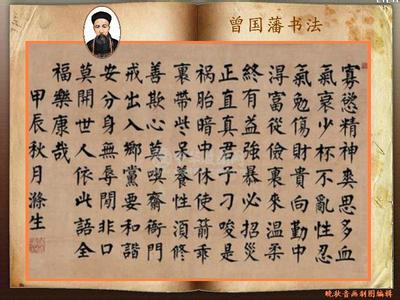 曾国藩书法
寡慾精神爽思多血
氣衰少杯不亂性忍
氣勉傷財貴向勤中
淂富從儉裏来溫柔
終有益強暴必招災
正直真君子刁唆是
祸胎暗中休使箭乖
裏帶些呆養性湏修
善欺心莫喫齋衙門
戒出入鄉黨要和諧
安分身無辱閒非口
莫開世人依此語全
福樂康哉
甲辰秋月滌生
晚秋音画制图编辑